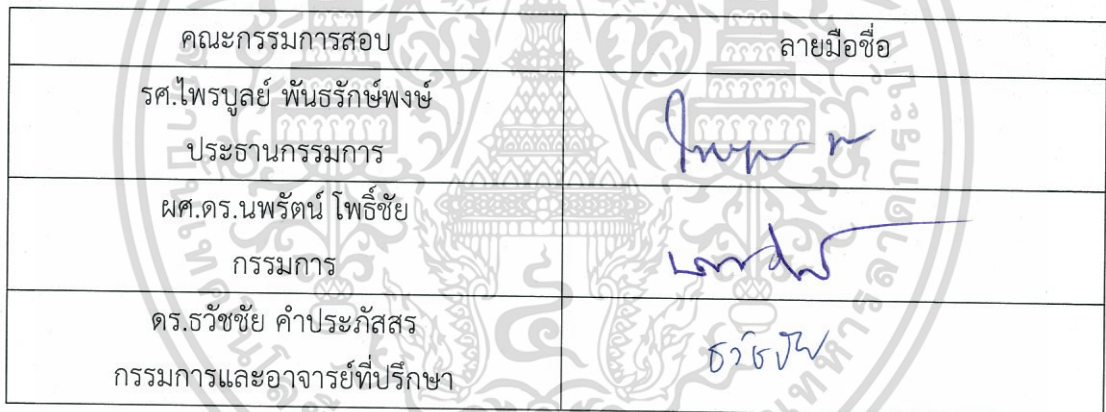 คณะกรรมการสอบ ลายมือชื่อ
รศ.ไพรบูลย์ พันธรักษ์พงษ์
ประธานกรรมการ
ผศ.ดร.นพรัตน์ โพธิ์ชัย
กรรมการ
ดร.ธวัชชัย คำประภัสสร
กรรมการและอาจารย์ที่ปรึกษา
ธวัชชัย